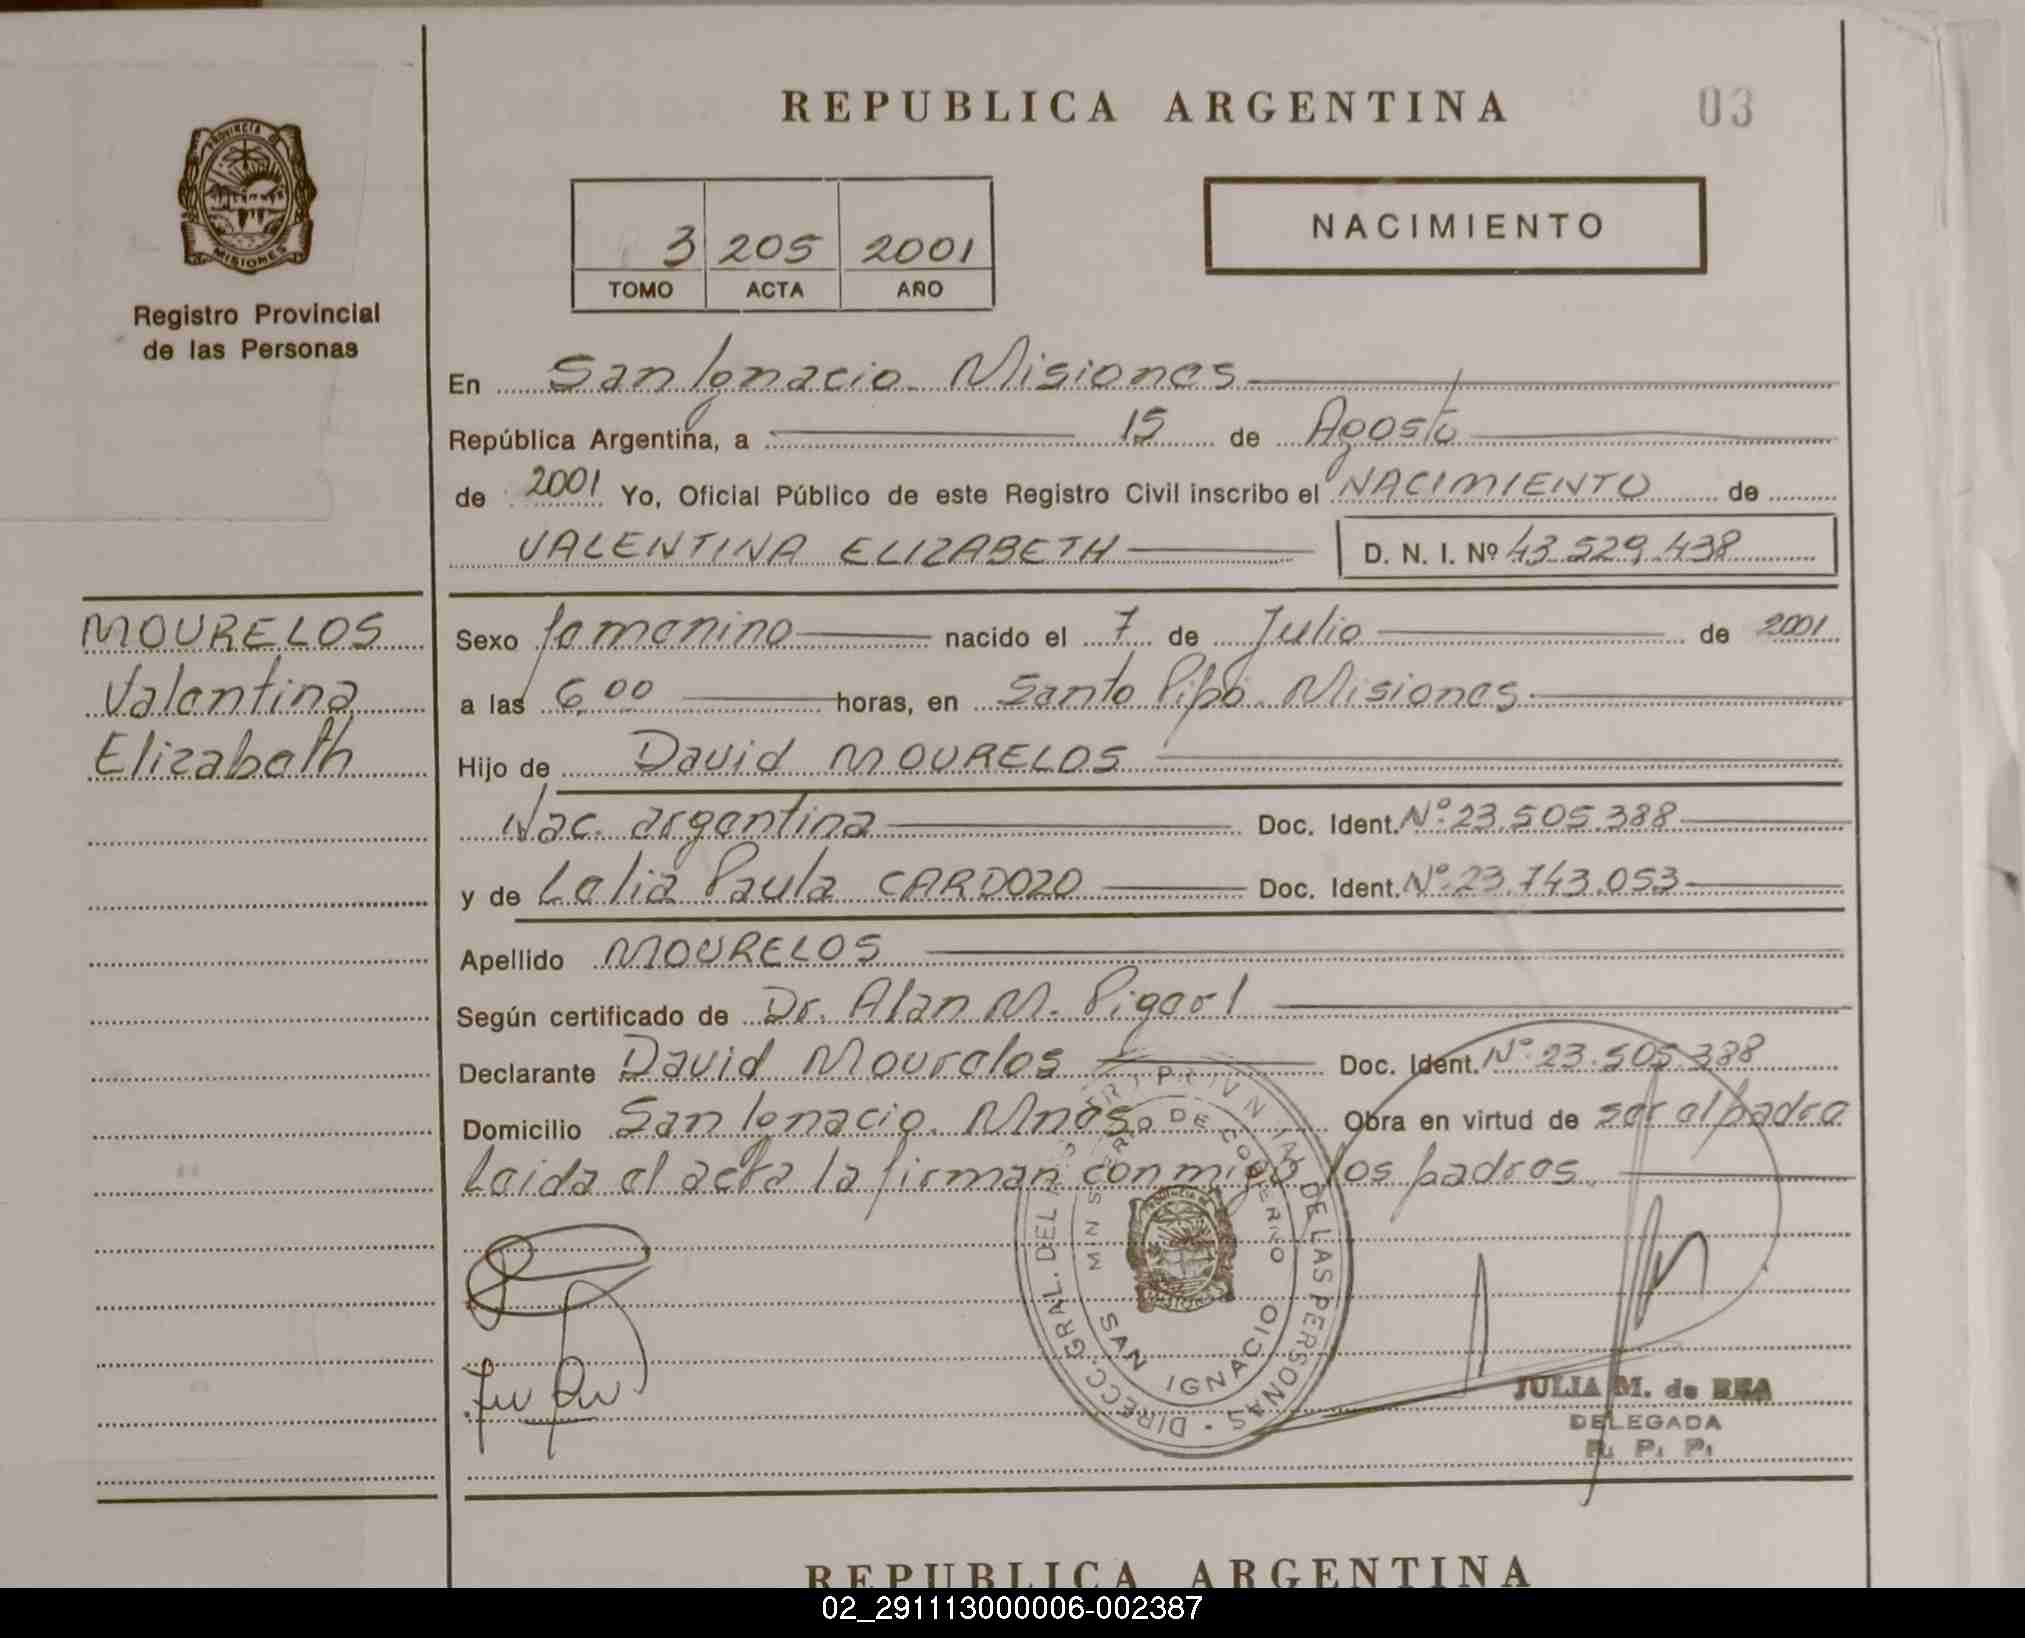 REPUBLICA ARGENTINA
03
PROVINCIA DE
MISIONES
Registro Provincial
de las Personas
3 205 2001
TOMO ACTA AÑO
NACIMIENTO
En San Ignacio. Misiones
República Argentina, a 15 de Agosto
de 2001 Yo, Oficial Público de este Registro Civil inscribo el NACIMIENTO de
VALENTINA ELIZABETH D. N. I. Nº 43.529.438
MOURELOS
Valentina
Elizabeth
Sexo femenino nacido el 7 de Julio de 2001
a las 6,00 horas, en Santo Pipó. Misiones
Hijo de David MOURELOS
Nac. argentina Doc. Ident. Nº 23.505.388
y de Lelia Paula CARDOZO Doc. Ident. Nº 23.743.053
Apellido MOURELOS
Según certificado de Dr. Alan M.
Declarante David Mourelos Doc. Ident. Nº 23.505.388
Domicilio San Ignacio. Mnes. Obra en virtud de ser el padre
Leida el acta la firman conmigo los padres.
DIRECC. GRAL. DEL DE LAS PERSONAS
SAN IGNACIO
JULIA M. de REA
DELEGADA
R. P. P.
REPUBLICA ARGENTINA
02_291113000006-002387